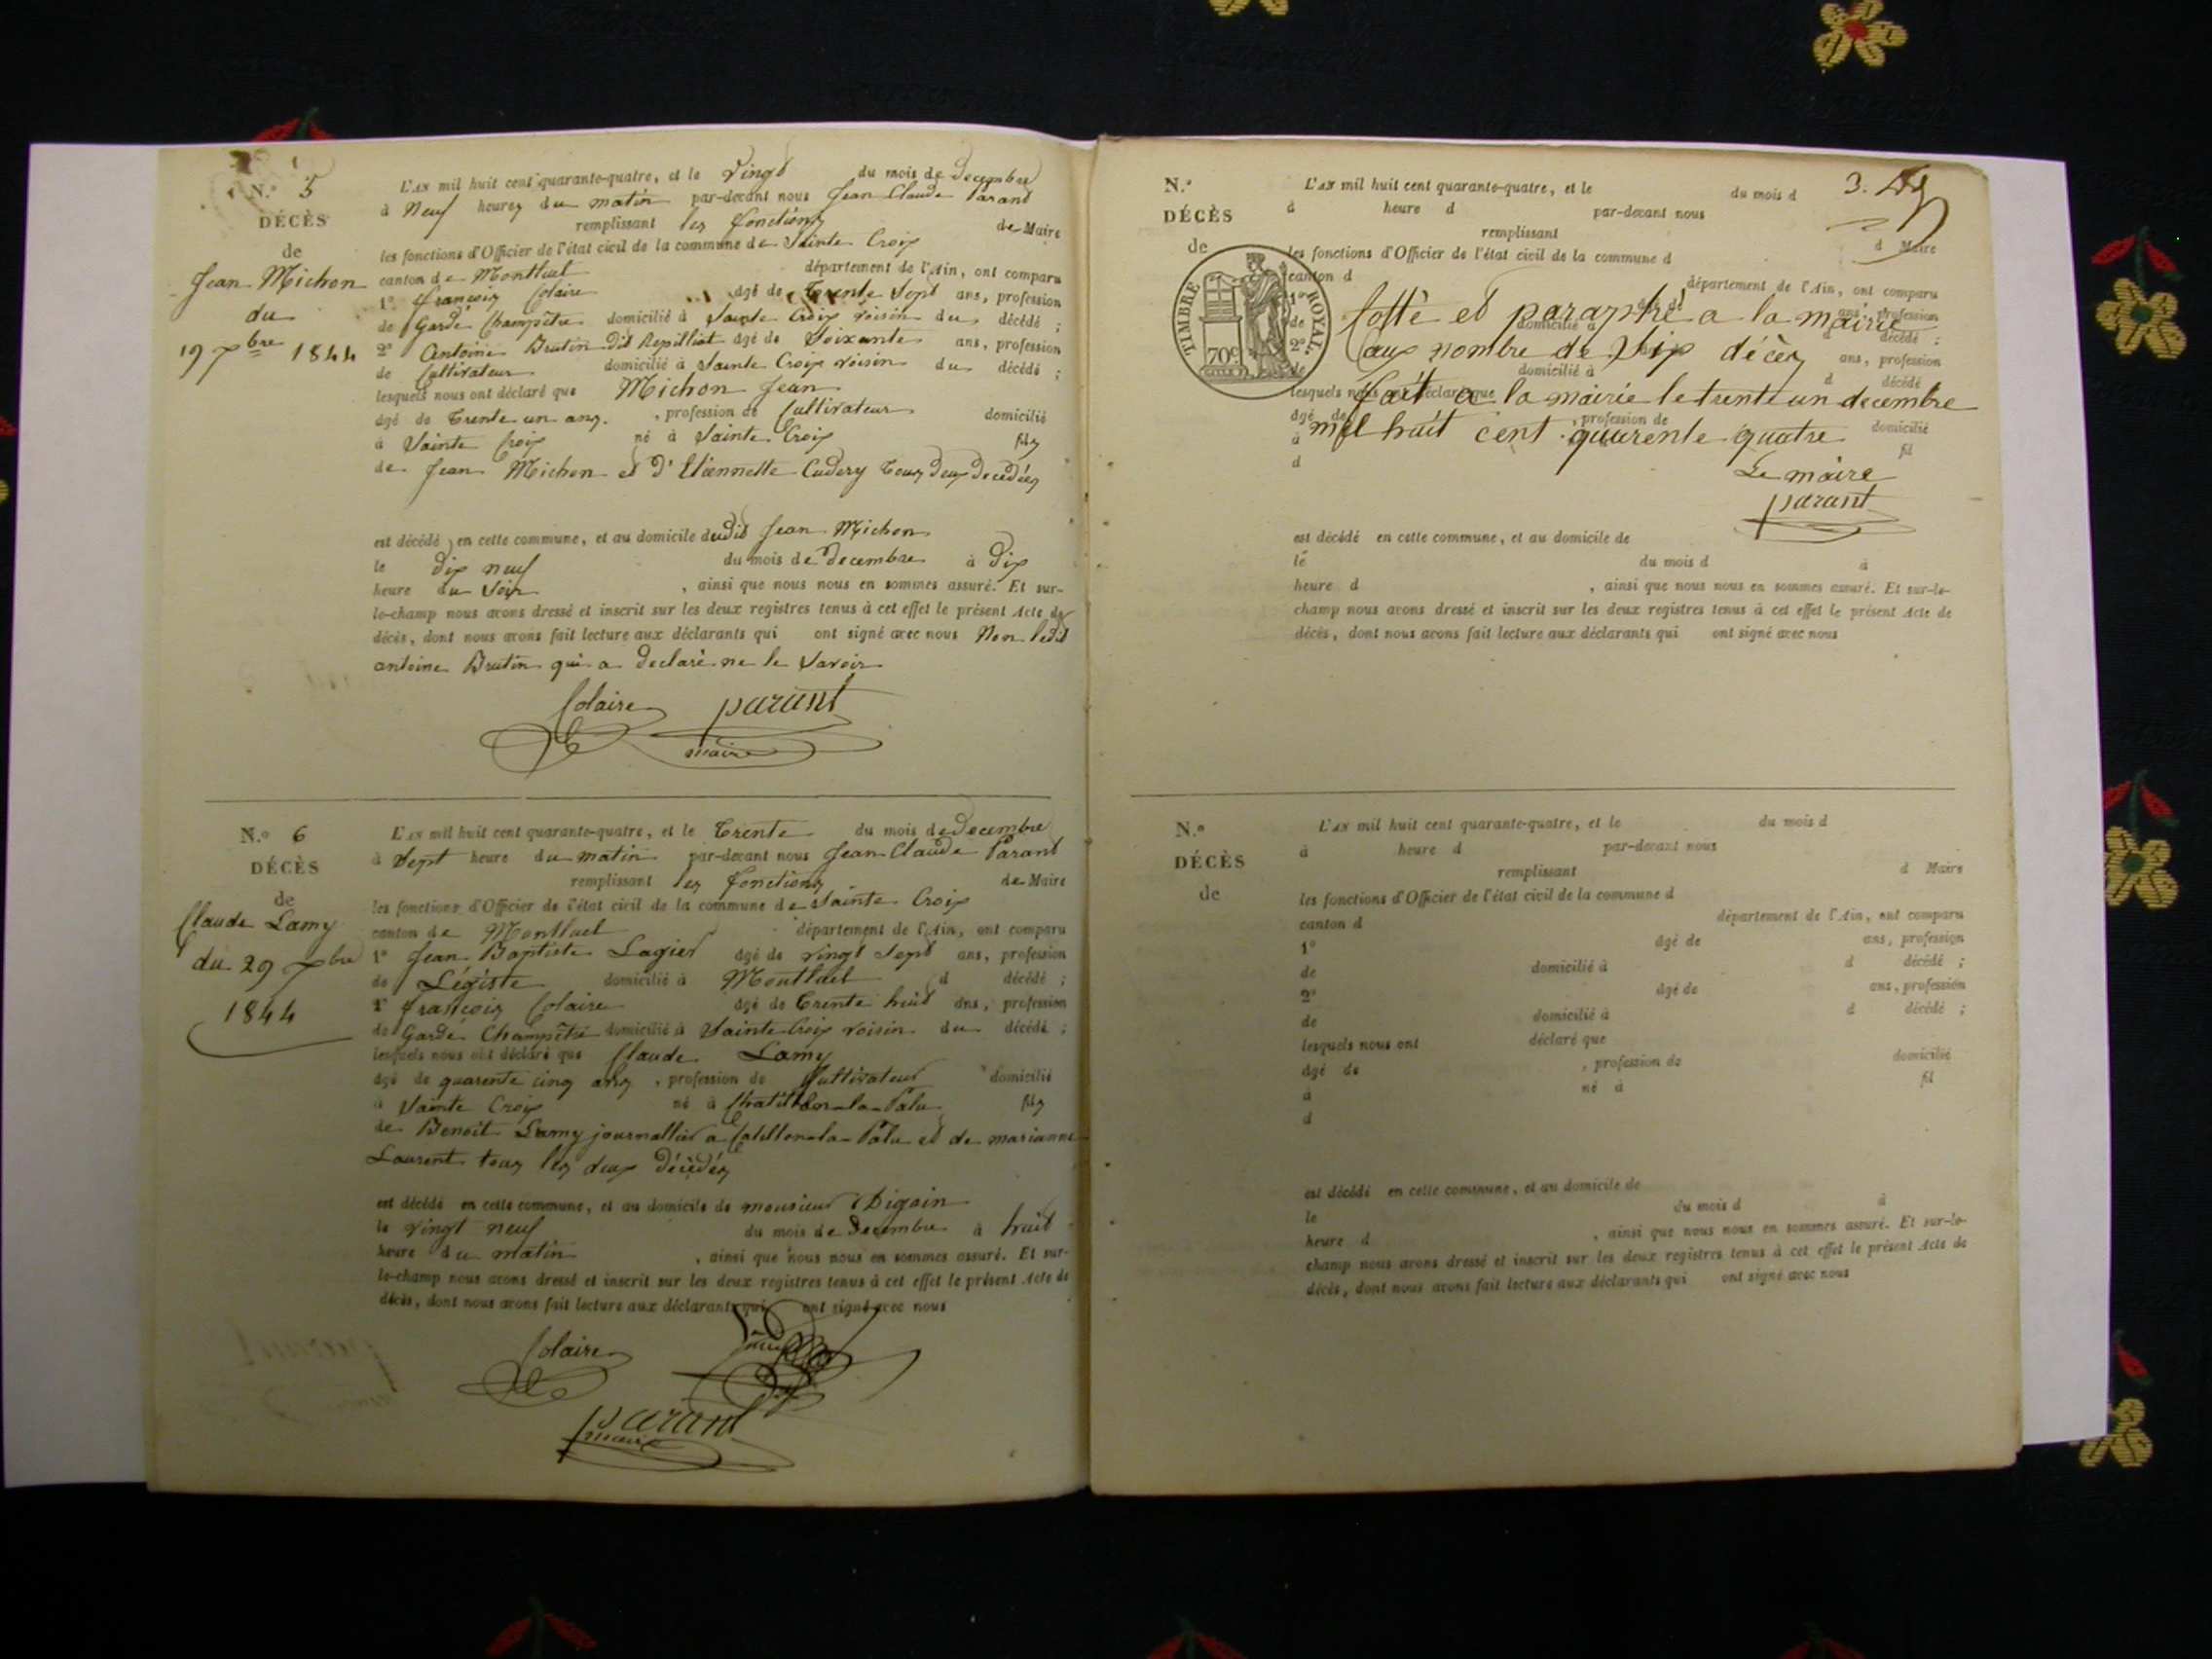 N.° 5
DÉCÈS
de
Jean Michon
du
19 xbre 1844
L'AN mil huit cent quarante-quatre, et le vingt du mois de Decembre
à Neuf heures du matin par-devant nous Jean Claude Parant
remplissant les fonctions de Maire
les fonctions d'Officier de l'état civil de la commune de Sainte Croix
canton de Montluel département de l'Ain, ont comparu
1° François Colaire âgé de Trente Sept ans, profession
de Garde Champêtre domicilié à Sainte Croix voisin du décédé ;
2° Antoine Brutin dit Repilliat âgé de Soixante ans, profession
de Cultivateur domicilié à Sainte Croix voisin du décédé ;
lesquels nous ont déclaré que Michon Jean
âgé de Trente un ans , profession de Cultivateur domicilié
à Sainte Croix né à Sainte Croix fils
de Jean Michon et d'Etiennette Cudery tous deux decedés
est décédé en cette commune, et au domicile dudit Jean Michon
le dix neuf du mois de decembre à dix
heure du Soir , ainsi que nous nous en sommes assuré. Et sur-
le-champ nous avons dressé et inscrit sur les deux registres tenus à cet effet le présent Acte de
décès, dont nous avons fait lecture aux déclarants qui ont signé avec nous Non ledit
antoine Brutin qui a declaré ne le Savoir
Colaire parant
maire
N.° 6
DÉCÈS
de
Claude Lamy
du 29 xbre
1844
L'AN mil huit cent quarante-quatre, et le Trente du mois de Decembre
à Sept heure du matin par-devant nous Jean Claude Parant
remplissant les fonctions de Maire
les fonctions d'Officier de l'état civil de la commune de Sainte Croix
canton de Montluel département de l'Ain, ont comparu
1° Jean Baptiste Lagier âgé de vingt Sept ans, profession
de Légiste domicilié à Montluel d décédé ;
2° François Colaire âgé de Trente huit ans, profession
de Garde Champêtre domicilié à Sainte Croix voisin du décédé ;
lesquels nous ont déclaré que Claude Lamy
âgé de quarente cinq ans , profession de Cultivateur domicilié
à Sainte Croix né à Chatillon-la-Palu fils
de Benoit Lamy journallier a Catillon-la-Palu et de marianne
Laurent tous les deux décédés
est décédé en cette commune, et au domicile de monsieur Digoin
le vingt neuf du mois de Decembre à huit
heure du matin , ainsi que nous nous en sommes assuré. Et sur-
le-champ nous avons dressé et inscrit sur les deux registres tenus à cet effet le présent Acte de
décès, dont nous avons fait lecture aux déclarants qui ont signé avec nous
Colaire
parant
maire
N.°
DÉCÈS
de
TIMBRE ROYAL.
70c
L'AN mil huit cent quarante-quatre, et le du mois d
3.
à heure d par-devant nous
remplissant d Maire
les fonctions d'Officier de l'état civil de la commune d
canton d département de l'Ain, ont comparu
1° âgé de ans, profession
de domicilié à décédé ;
2° ans, profession
de domicilié à d décédé
lesquels nous ont déclaré que
âgé de , profession de domicilié
à fil
d
Cotté et paraphé a la mairie
aux nombre de Six décès
fait a la mairie le trente un decembre
mil huit cent quurente quatre
Le maire
parant
est décédé en cette commune, et au domicile de
le du mois d à
heure d , ainsi que nous nous en sommes assuré. Et sur-le-
champ nous avons dressé et inscrit sur les deux registres tenus à cet effet le présent Acte de
décès, dont nous avons fait lecture aux déclarants qui ont signé avec nous
N.°
DÉCÈS
de
L'AN mil huit cent quarante-quatre, et le du mois d
à heure d par-devant nous
remplissant d Maire
les fonctions d'Officier de l'état civil de la commune d
canton d département de l'Ain, ont comparu
1° âgé de ans, profession
de domicilié à d décédé ;
2° âgé de ans, profession
de domicilié à d décédé ;
lesquels nous ont déclaré que
âgé de , profession de domicilié
à né à fil
d
est décédé en cette commune, et au domicile de
le du mois d à
heure d , ainsi que nous nous en sommes assuré. Et sur-le-
champ nous avons dressé et inscrit sur les deux registres tenus à cet effet le présent Acte de
décès, dont nous avons fait lecture aux déclarants qui ont signé avec nous